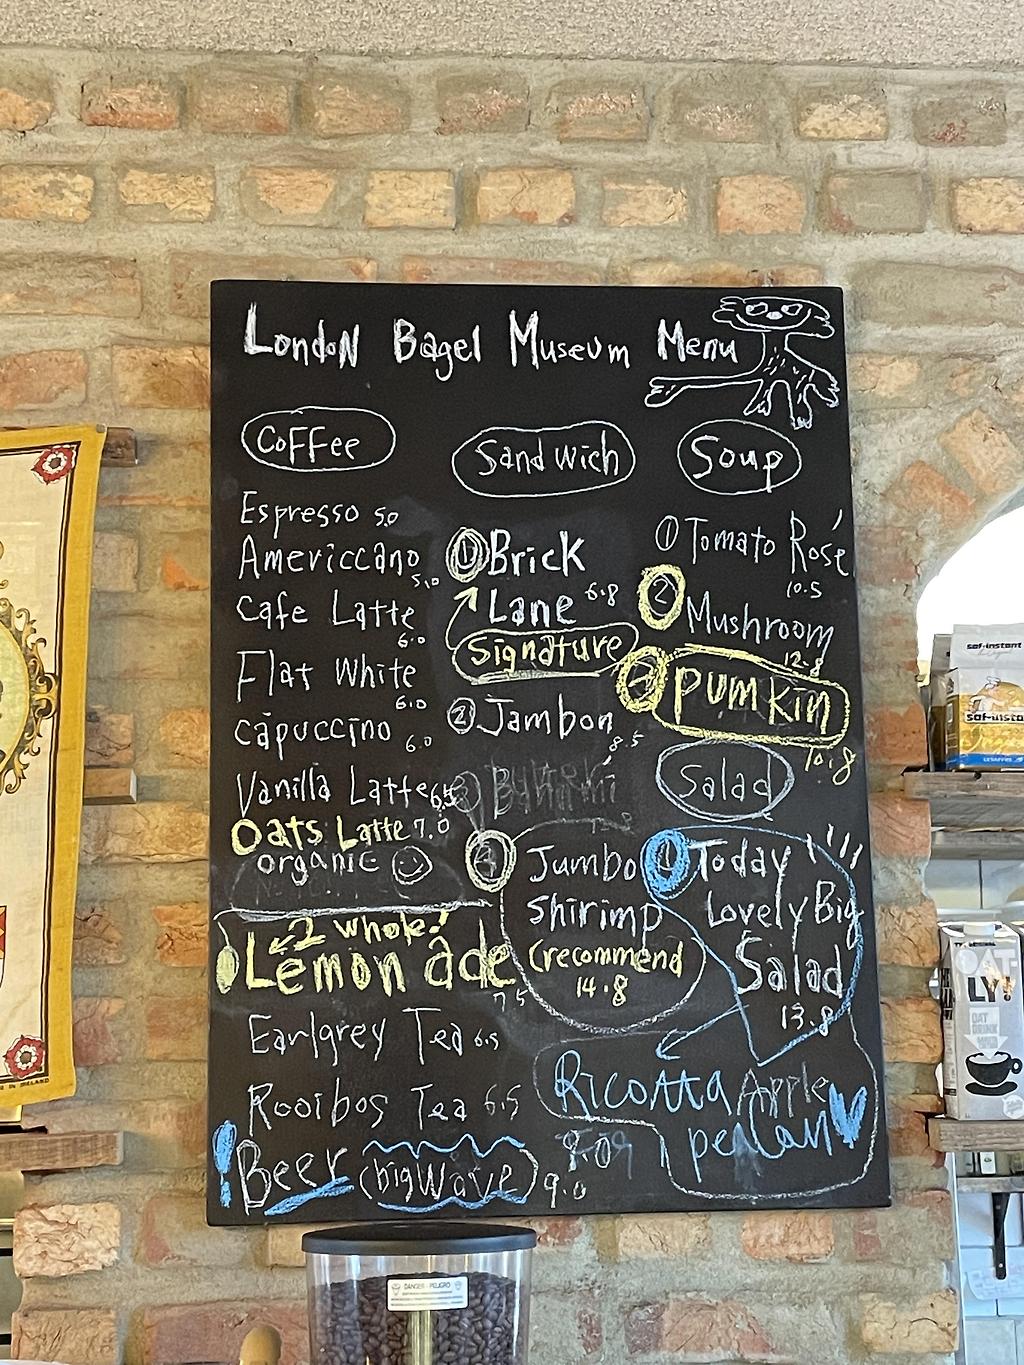 London Bagel Museum Menu
Coffee
Espresso 5.0
Americcano 5.0
Cafe Latte 6.0
Flat White 6.0
capuccino 6.0
Vanilla Latte 6.5
Oats Latte 7.0
organic
2 whole!
Lemon ade 7.5
Earlgrey Tea 6.5
Rooibos Tea 6.5
Beer (big wave) 9.0
Sandwich
① Brick
Lane 6.8
Signature
② Jambon 8.5
③
④ Jumbo
shirimp
(recommend
14.8
Soup
① Tomato Rosé
10.5
② Mushroom
12.8
pumkin
10.8
Salad
① Today
Lovely Big
Salad
13.8
Ricotta Apple
pecan
DANGER - PELIGRO
saf-instant
saf-insta
OAT-
LY!
OAT
DRINK